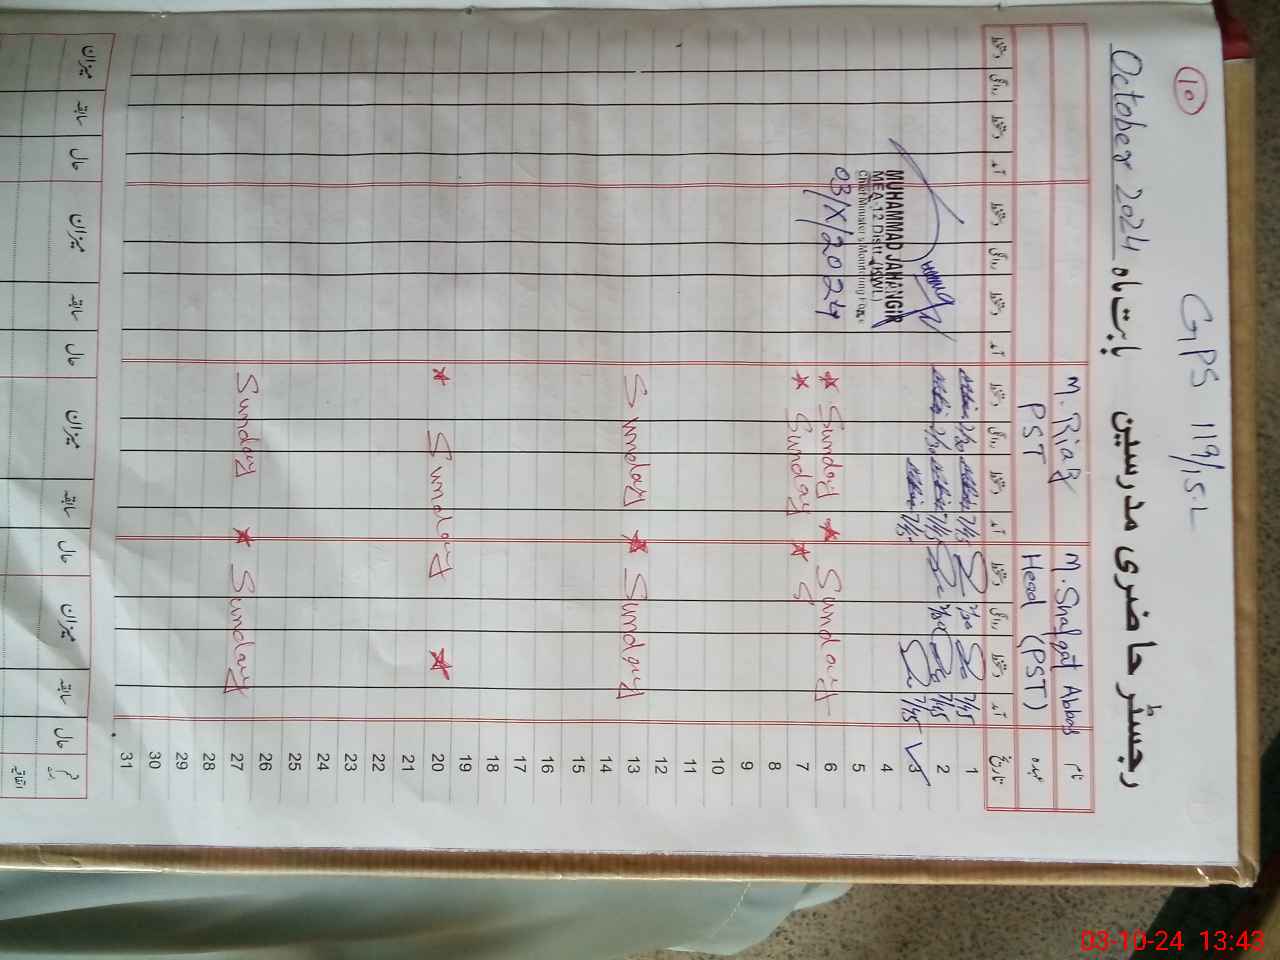 10
GPS 119/15-L
رجسٹر حاضری مدرسین بابت ماہ October 2024
نام M. Shafqat Abbas M. Riaz
عہدہ Head (PST) PST
تاریخ آمد دستخط روانگی دستخط آمد دستخط روانگی دستخط آمد دستخط روانگی دستخط آمد دستخط روانگی دستخط
1 7/45 7/45
2 7/45 7/45
3 7/45 7/45
4
5
6 Sunday Sunday
7 S Sunday
8
9
10
11
12
13 Sunday Sunday
14
15
16
17
18
19
20 Sunday
21
22
23
24
25
26
27 Sunday Sunday
28
29
30
31
MUHAMMAD JAHANGIR
MEA-12 Distt. (KWL)
Chief Minister's Monitoring Force
03/X/2024
حال سابقہ میزان حال سابقہ میزان حال سابقہ میزان حال سابقہ میزان
اتفاقیہ
03-10-24 13:43